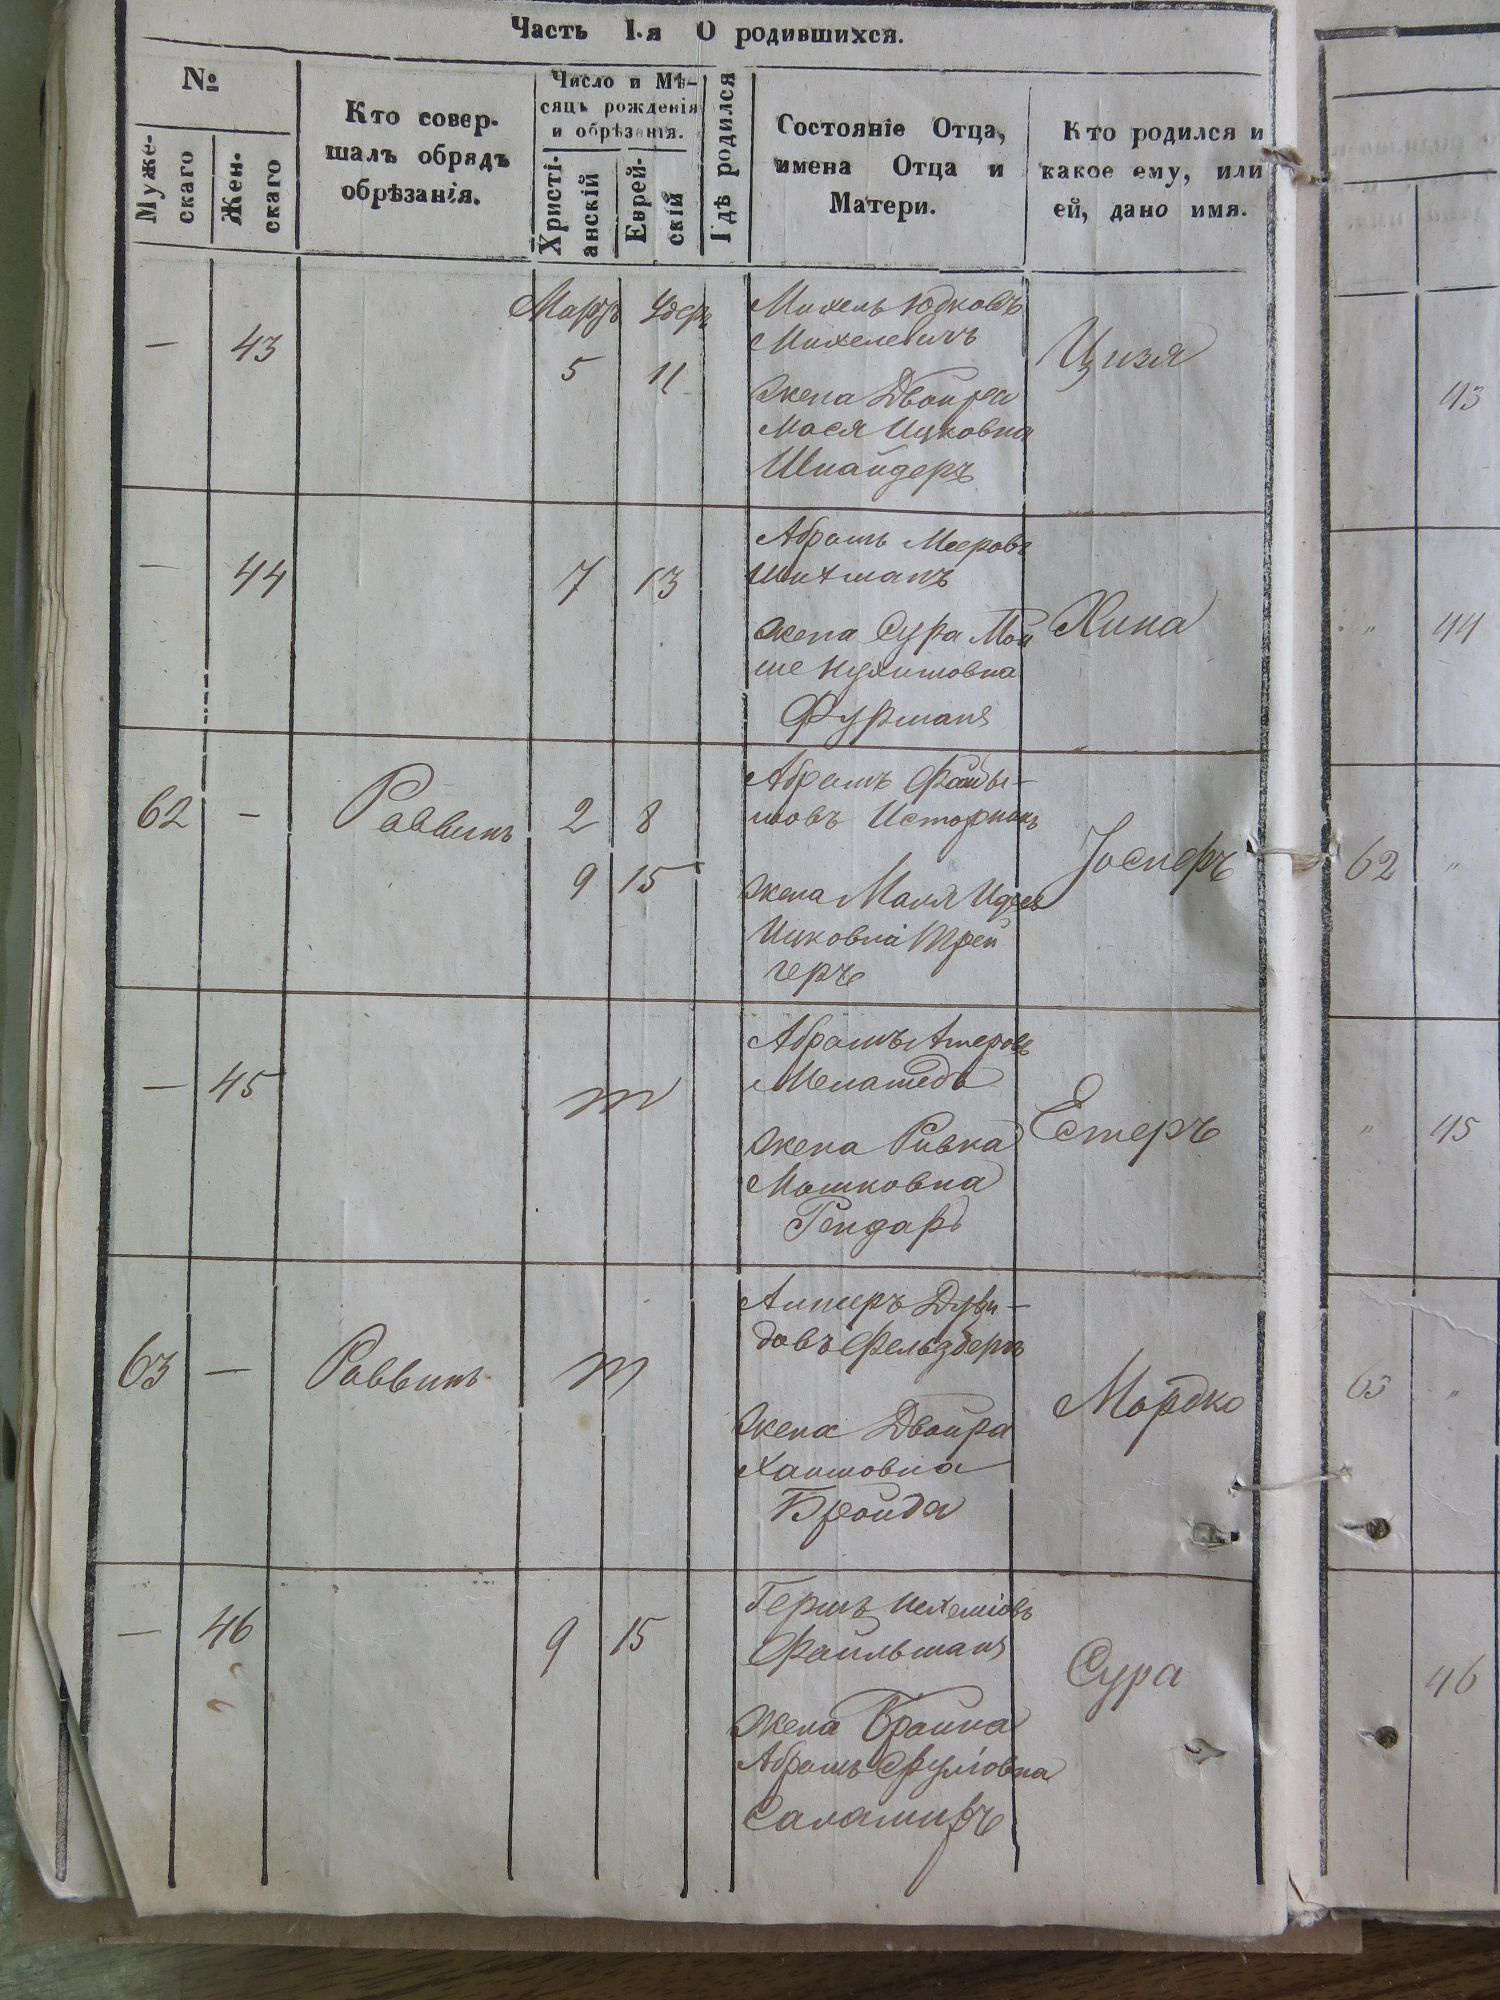 Часть I.я О родившихся.
№
Муже-
скаго
Жен-
скаго
Кто совер-
шалъ обрядъ
обрѣзанія.
Число и Мѣ-
сяцъ рожденія
и обрѣзанія.
Христі-
анскій
Еврей-
скій
Гдѣ родился
Состояніе Отца,
имена Отца и
Матери.
Кто родился и
какое ему, или
ей, дано имя.
— 43
Мартъ
5 11
Михель Юдковъ
Михелевичъ
жена Двойра
Мася Ицковна
Шнайдеръ
Цизя
— 44
7 13
Абрамъ Мееровъ
Шихманъ
жена Сура Мой
ше Нухимовна
Фурманъ
Хина
62 —
Раввинъ
2 8
9 15
Абрамъ
мовъ Историкъ
жена Маля
Ицковна Трей
геръ
Іосперъ
— 45
Абрамъ
Меламедъ
жена Ривка
Мошковна
Гендаръ
Естеръ
63 —
Раввинъ
Алтеръ Дуви-
довъ Фельдберъ
жена Двойра
Хаимовна
Бройда
Мордко
— 46
9 15
Гершъ Нехемiовъ
Файльманъ
жена Брайна
Абрамъ
Сура
43
" 44
62 "
" 45
63 "
46